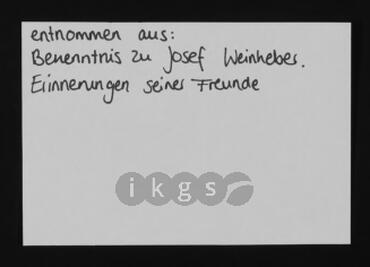 entnommen aus:
Bekenntnis zu Josef Weinheber.
Erinnerungen seiner Freunde
ikgs